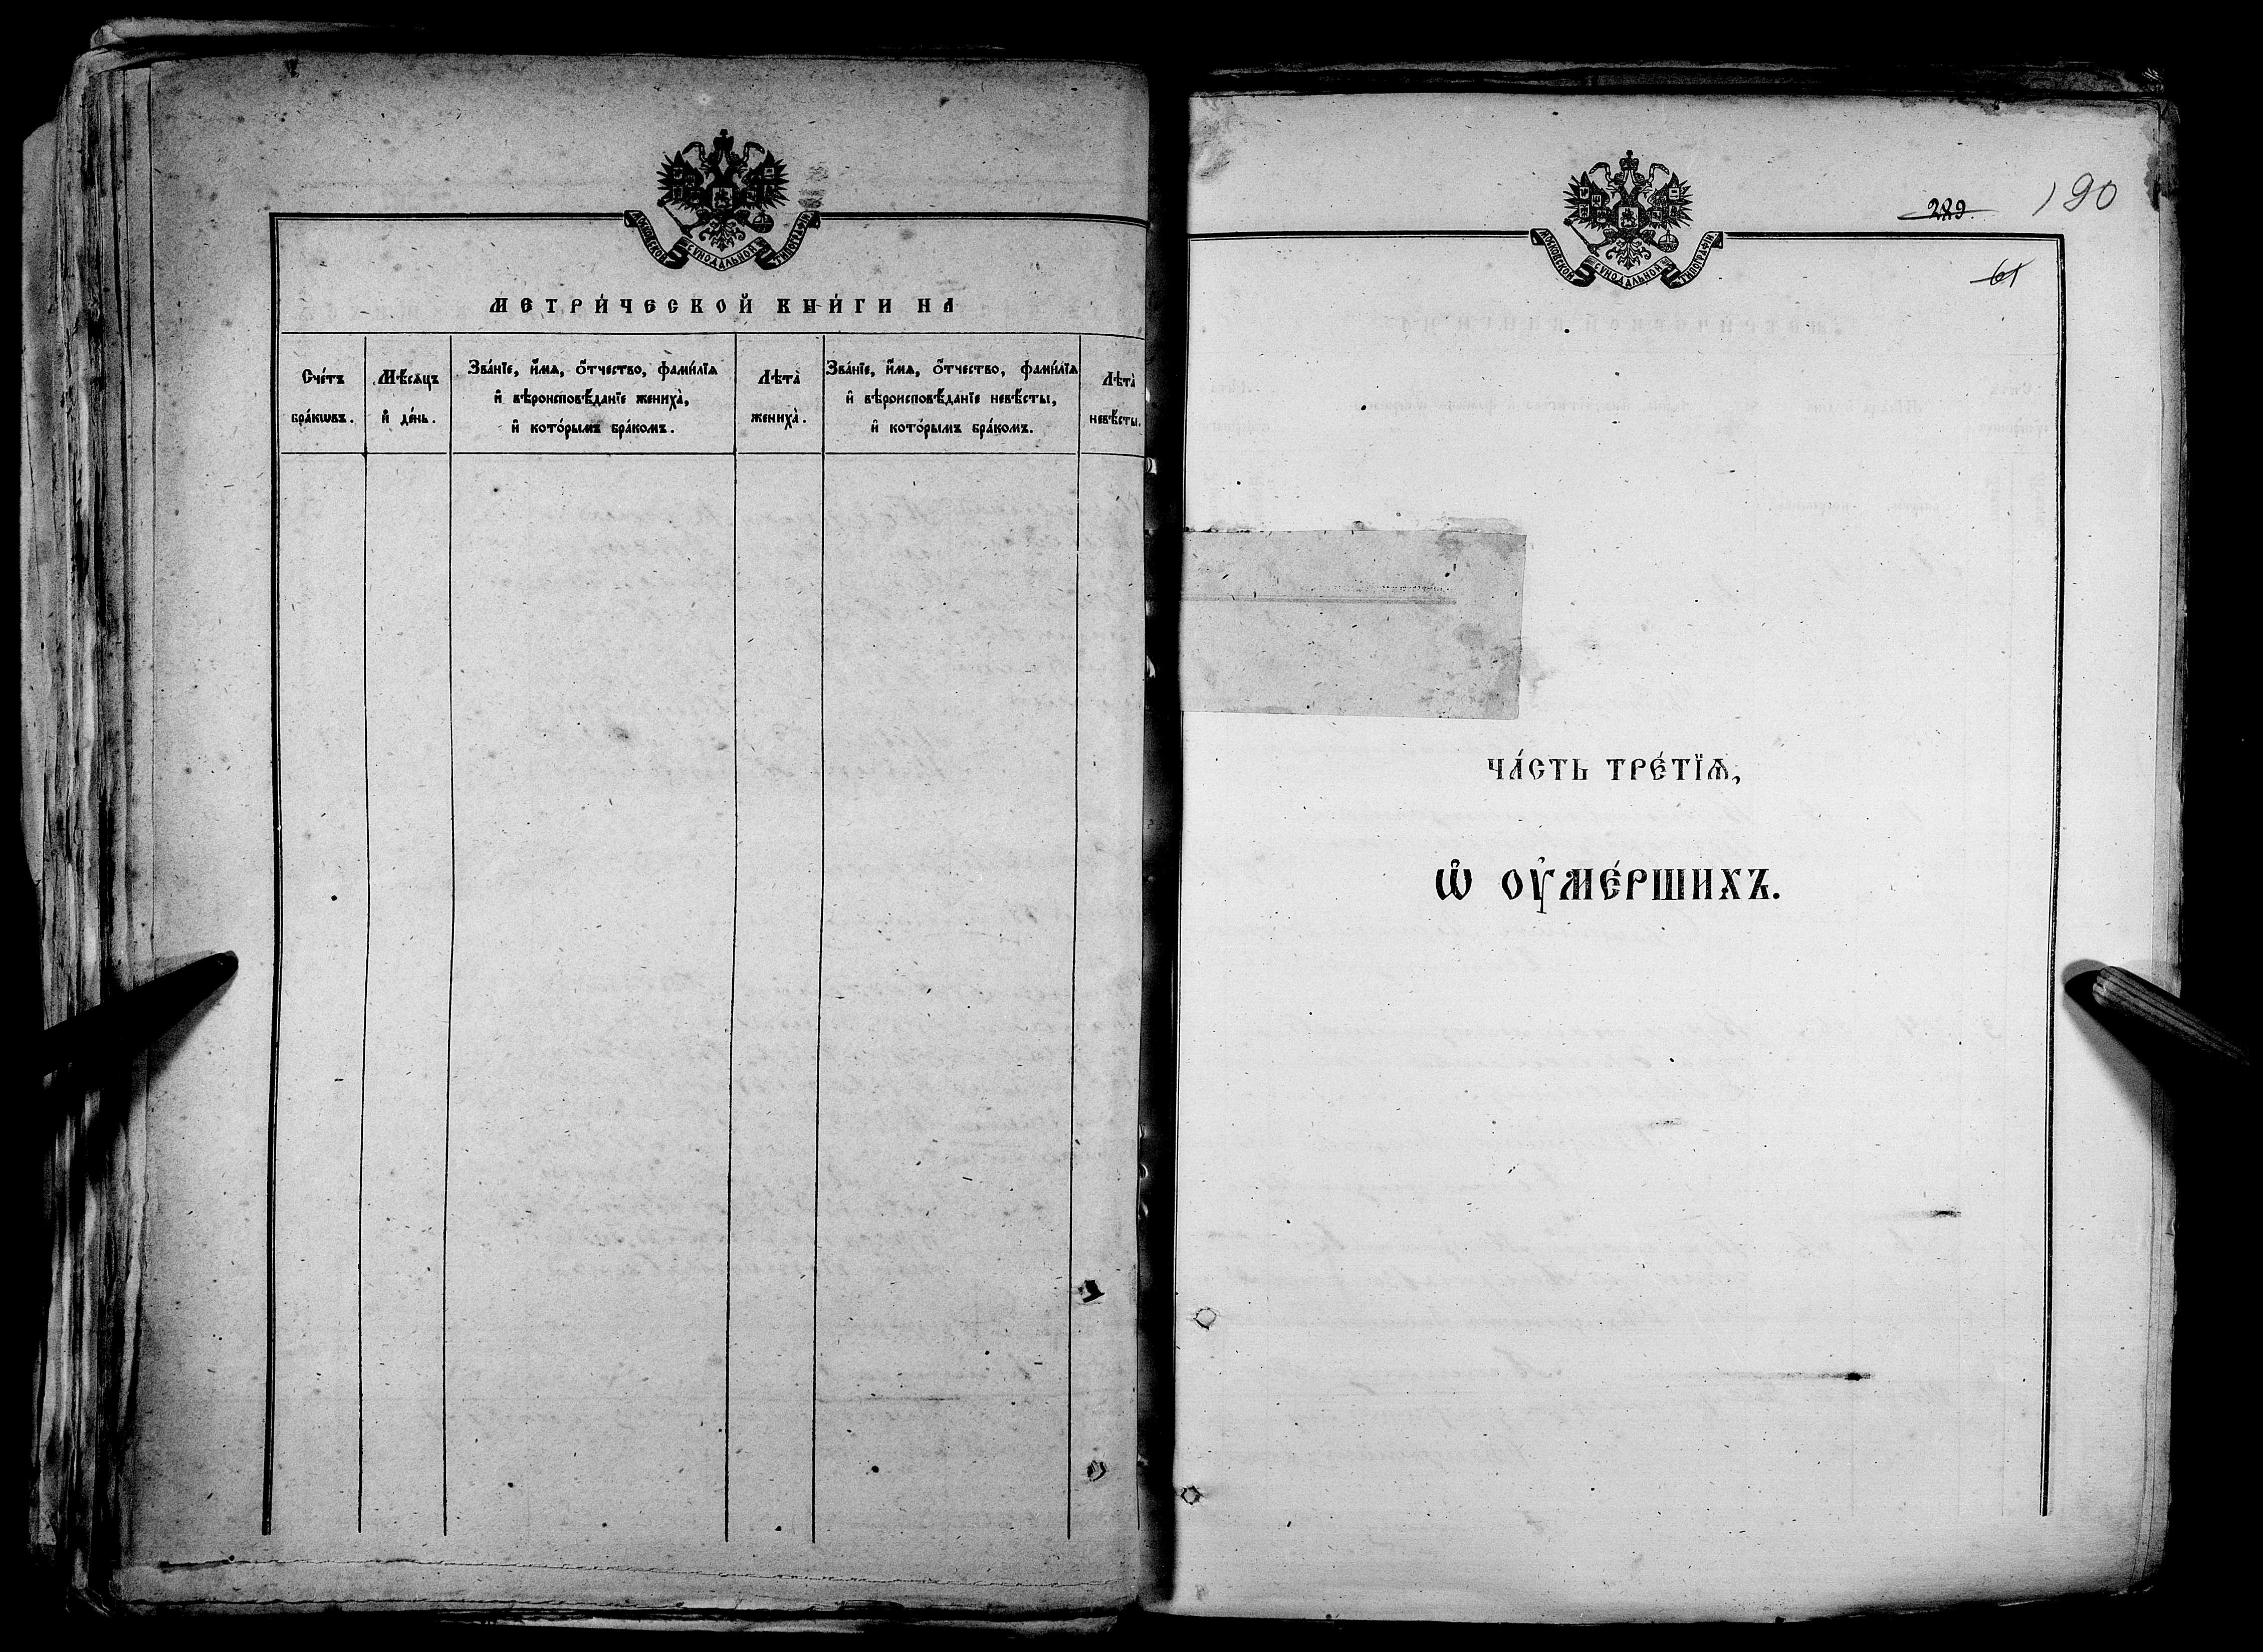 МОСКОВСКОЙ СѴНОДАЛЬНОЙ ТИПОГРАФІИ
МЕТРИ́ЧЕСКОЙ КНИ́ГИ НА
Сче́тъ бра́кѡвъ.
Мѣ́сѧцъ и҆ де́нь.
Зва́нїе, и҆́мѧ, ѻ҆́тчество, фами́лїѧ
и҆ вѣроисповѣ́данїе жениха̀,
и҆ кото́рымъ бра́комъ.
Лѣта̀ жениха̀.
Зва́нїе, и҆́мѧ, ѻ҆́тчество, фами́лїѧ
и҆ вѣроисповѣ́данїе невѣ́сты,
и҆ кото́рымъ бра́комъ.
Лѣта̀ невѣ́сты.
МОСКОВСКОЙ СѴНОДАЛЬНОЙ ТИПОГРАФІИ
229 190
61
ЧА́СТЬ ТРЕ́ТЇѦ,
Ѡ҆ ОУ҆МЕ́РШИХЪ.